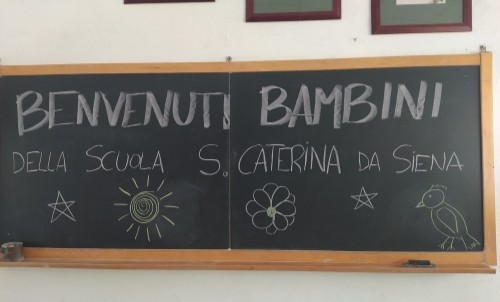 BENVENUTI BAMBINI
DELLA SCUOLA S. CATERINA DA SIENA